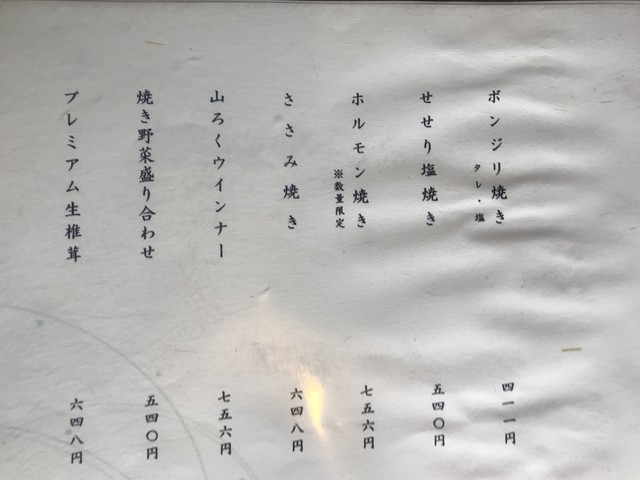 ボンジリ焼き
タレ・塩
四一一円
せせり塩焼き
五四〇円
ホルモン焼き
※数量限定
七五六円
ささみ焼き
六四八円
山ろくウインナー
七五六円
焼き野菜盛り合わせ
五四〇円
プレミアム生椎茸
六四八円